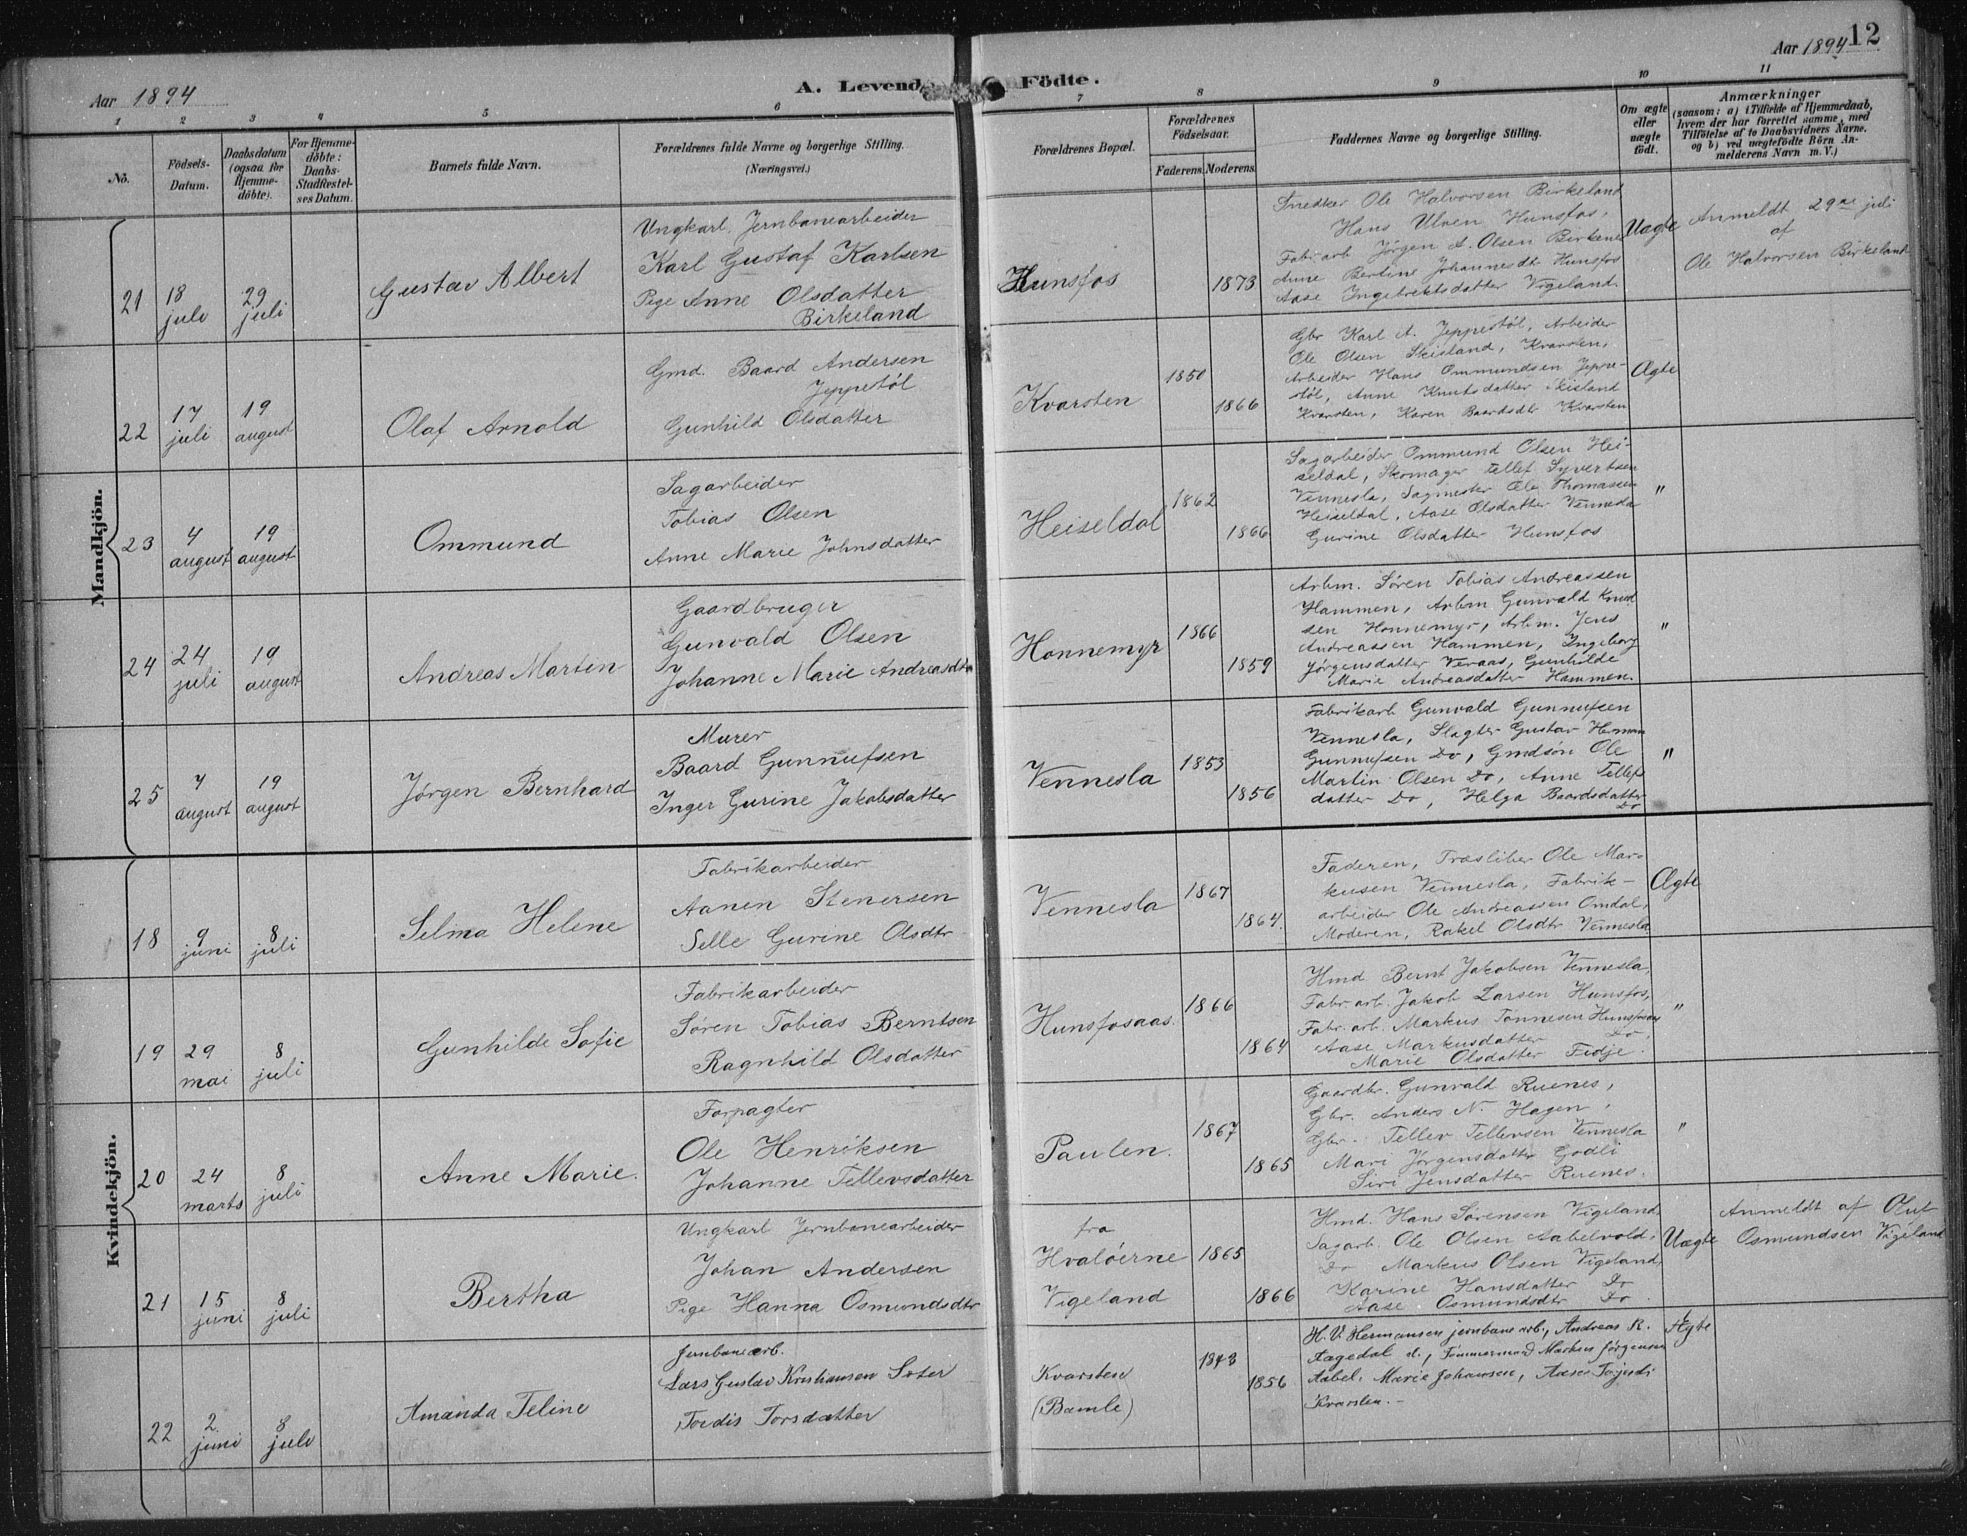 Aar 1894
A. Levende Födte.
Aar 1894 12
1 2 3 4 5 6 7 8 9 10 11
No.
Födsels-
Datum.
Daabsdatum
(ogsaa for
Hjemme-
döbte).
For Hjemme-
döbte:
Daabs-
Stadfæstel-
ses Datum.
Barnets fulde Navn.
Forældrenes fulde Navne og borgerlige Stilling.
(Næringsvei.)
Forældrenes Bopæl.
Forældrenes
Födselsaar.
Faderens. Moderens.
Faddernes Navne og borgerlige Stilling.
Om ægte
eller
uægte
født.
Anmærkninger
(saasom: a) i Tilfælde af Hjemmedaab,
hvem der har forrettet samme, med
Tilföielse af to Daabsvidners Navne.
og b) ved uægtefödte Börn An-
melderens Navn m. V.)
Mandkjön.
21
18
juli
29
juli
Gustav Albert
Ungkarl. Jernbanearbeider
Karl Gustaf Karlsen
Pige Anne Olsdatter
Birkeland
Hunsfos
1873
Snedker Ole Halvorsen Birkeland
Hans Ulven Hunsfos,
Fabr. arb Jørgen A. Olsen Birkenes
Anne Bertine Johannesdt Hunsfos
Aase Ingebrektsdatter Vigeland.
Uægte
Anmeldt 29de juli
af
Ole Halvorsen Birkeland
22
17
juli
19
august
Olaf Arnold
Gmd. Baard Andersen
Jeppestøl
Gunhild Olsdatter
Kvarsten
1850
1866
Gbr Karl A. Jeppestøl, Arbeider
Ole Olsen Skisland, Kvarsten,
Arbeider Hans Ommundsen Jeppe-
støl, Anne Knutsdatter Skisland
Kvarsten, Karen Baardsdtr Kvarsten
Ægte
23
4
august
19
august
Ommund
Sagarbeider
Tobias Olsen
Anne Marie Johnsdatter
Heiseldal
1862
1866
Sagarbeider Ommund Olsen Hei-
seldal, Skomager Tellef Syvertsen
Vennesla, Sagmester Ole Thomassen
Heiseldal, Aase Olsdatter Vennesla
Gurine Olsdatter Hunsfos
"
24
24
juli
19
august
Andreas Martin
Gaardbruger
Gunvald Olsen
Johanne Marie Andreasdtr
Honnemyr
1866
1859
Arbm. Søren Tobias Andreassen
Hammen, Arbm Gunvald Knud
sen Honnemyr, Arbm. Jens
Andreassen Hammen, Ingeborg
Jørgensdatter Veraas, Gunhilde
Marie Andreasdatter Hammen.
"
25
7
august
19
august
Jørgen Bernhard
Murer
Baard Gunnufsen
Inger Gurine Jakobsdatter
Vennesla
1853
1856
Fabrikarb Gunvald Gunnufsen
Vennesla, Slagter Gustav Herman
Gunnufsen Do, Gmdsøn Ole
Martin Olsen Do, Anne Tellefs
datter Do, Helga Baardsdatter
Do
"
Kvindekjön.
18
9
juni
8
juli
Selma Helene
Fabrikarbeider
Aanen Stenersen
Selle Gurine Olsdtr
Vennesla
1867
1864.
Faderen, Træsliber Ole Mar-
kusen Vennesla, Fabrik-
arbeider Ole Andreassen Omdal,
Moderen, Rakel Olsdtr Vennesla
Ægte
19
29
mai
8
juli
Gunhilde Sofie
Fabrikarbeider
Søren Tobias Berntsen
Ragnhild Olsdatter
Hunsfosaas.
1866
1864
Hmd Bernt Jakobsen Vennesla,
Fabr. arb. Jakob Larsen Hunsfos,
Fabr. arb. Markus Tønnesen Hunsfosaas
Aase Markusdatter Do,
Marie Olsdatter Fidje.
"
20
24
marts
8
juli
Anne Marie.
Forpagter
Ole Henriksen
Johanne Tellevsdatter
Paulen.
1867
1865
Gaardbr. Gunvald Ruenes,
Gbr. Anders N. Hagen,
Gbr. Tellev Tellevsen Vennesla
Mari Jørgensdatter Godli
Siri Jensdatter Ruenes.
"
21
15
juni
8
juli
Bertha
Ungkarl Jernbanearbeider
Johan Andersen
Pige Hanna Osmundsdtr
fra
Hvaløerne
Vigeland
1865
1866
Hmd. Hans Sørensen Vigeland
Sagarb. Ole Olsen Aabelvold,
Do Markus Olsen Vigeland,
Karine Hansdatter Do
Aase Osmundsdtr Do
Uægte
Anmeldt af Oluf
Osmundsen Vigeland
22
2
juni
8
juli
Amanda Teline
Jernbanearb.
Lars Gustav Kristiansen Soter
Tordis Torsdatter
Kvarsten
(Bamle)
1843
1856
H. V. Hermansen jernbane arb., Andreas R.
Aagedal d., Tømmermand Markus Jørgensen
Aabel, Marie Johansen, Aase
Kvarsten.
Ægte